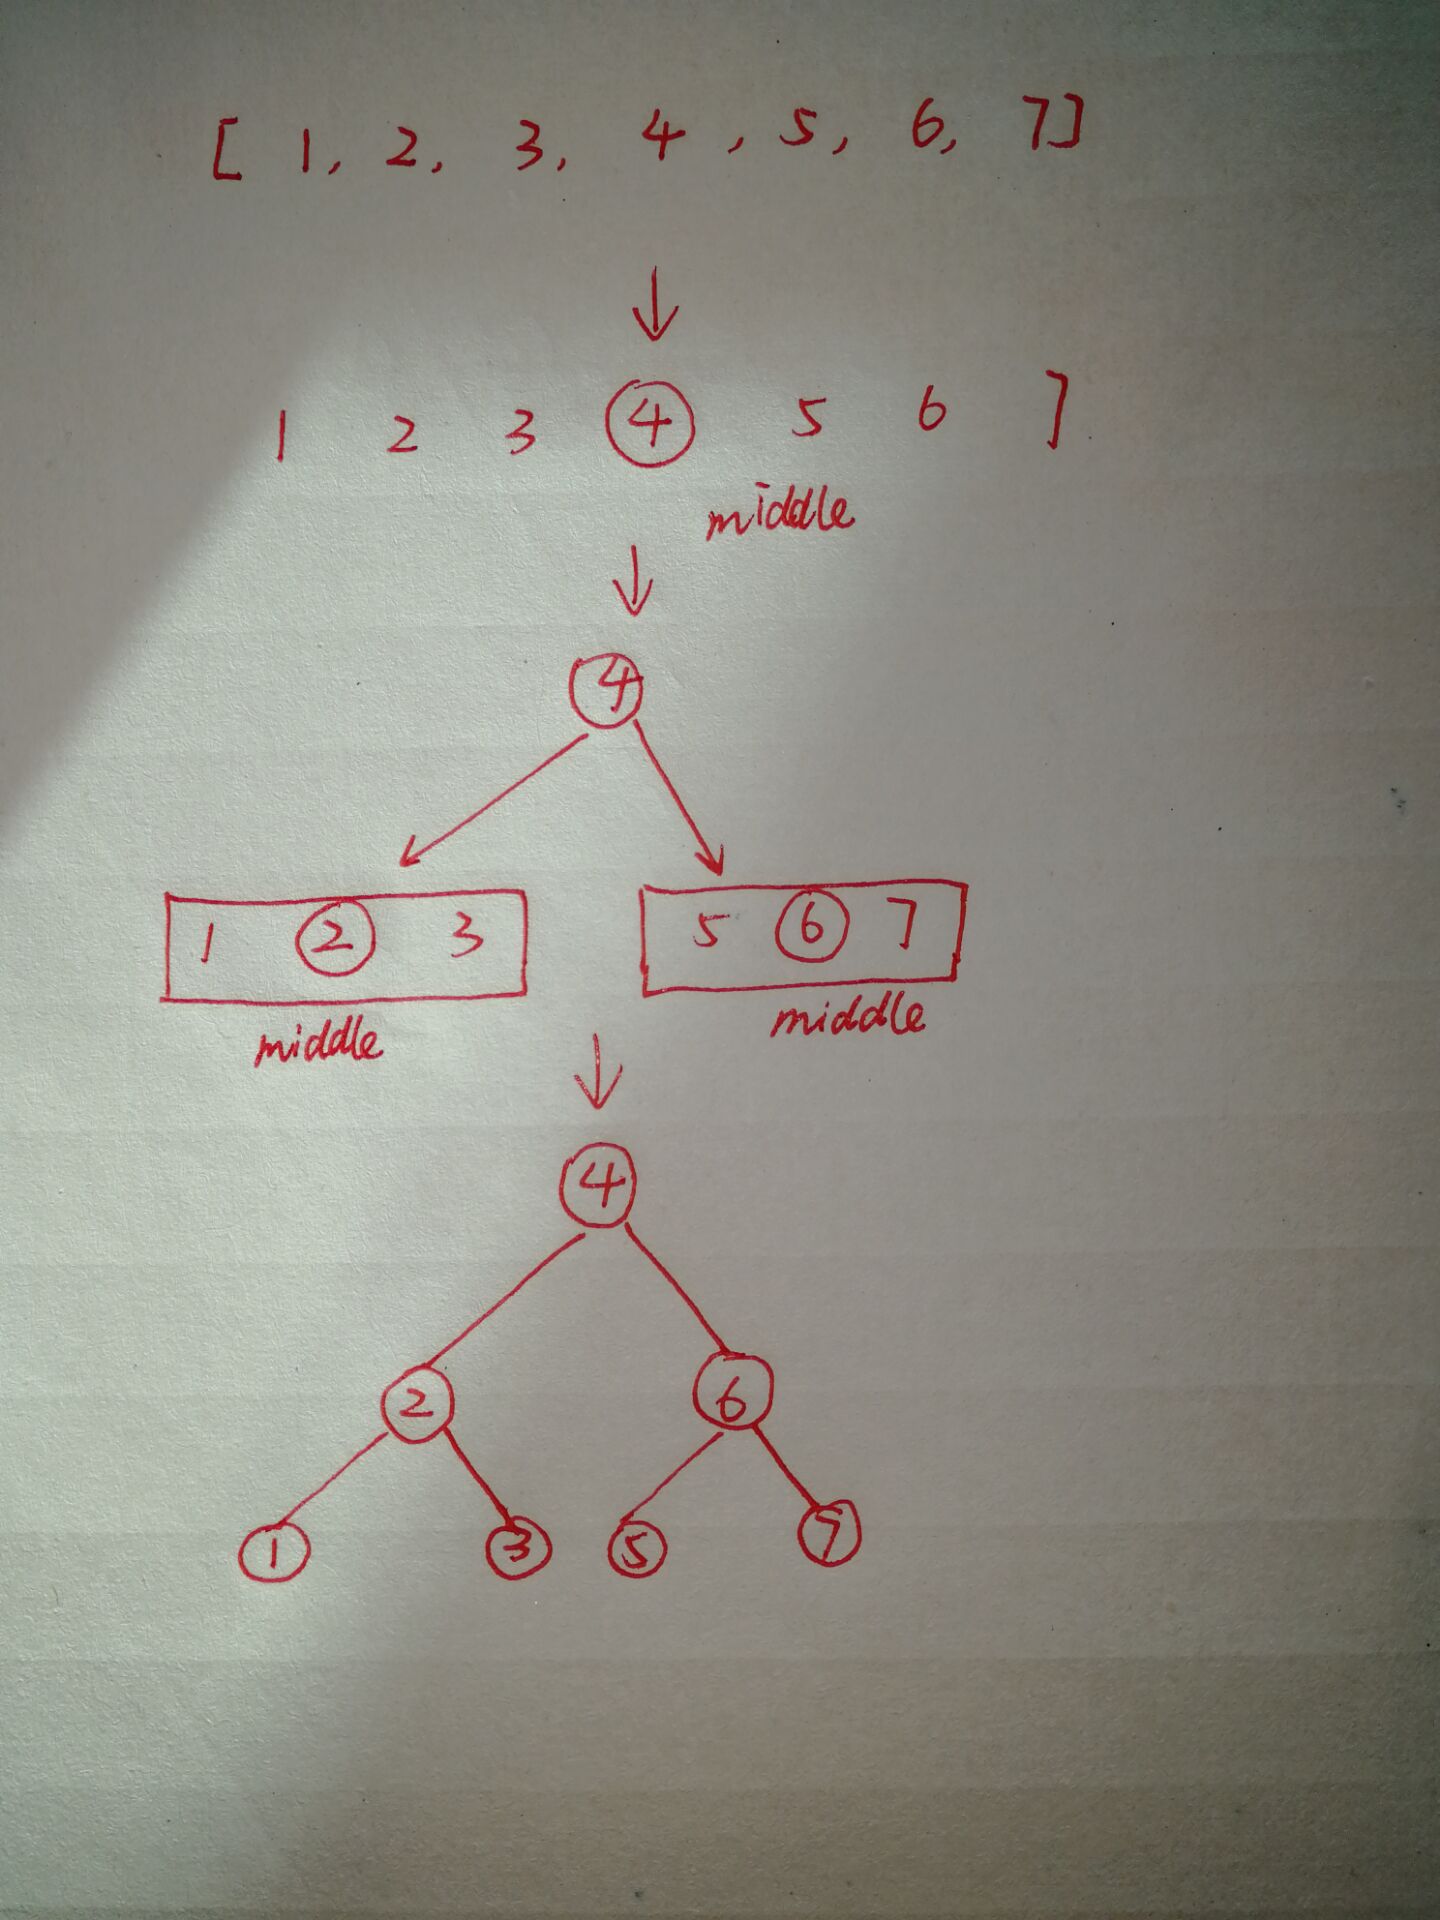 [ 1, 2, 3, 4 , 5, 6, 7]
1 2 3 4 5 6 ]
middle
4
1 2 3 5 6 7
middle middle
4
2 6
1 3 5 7